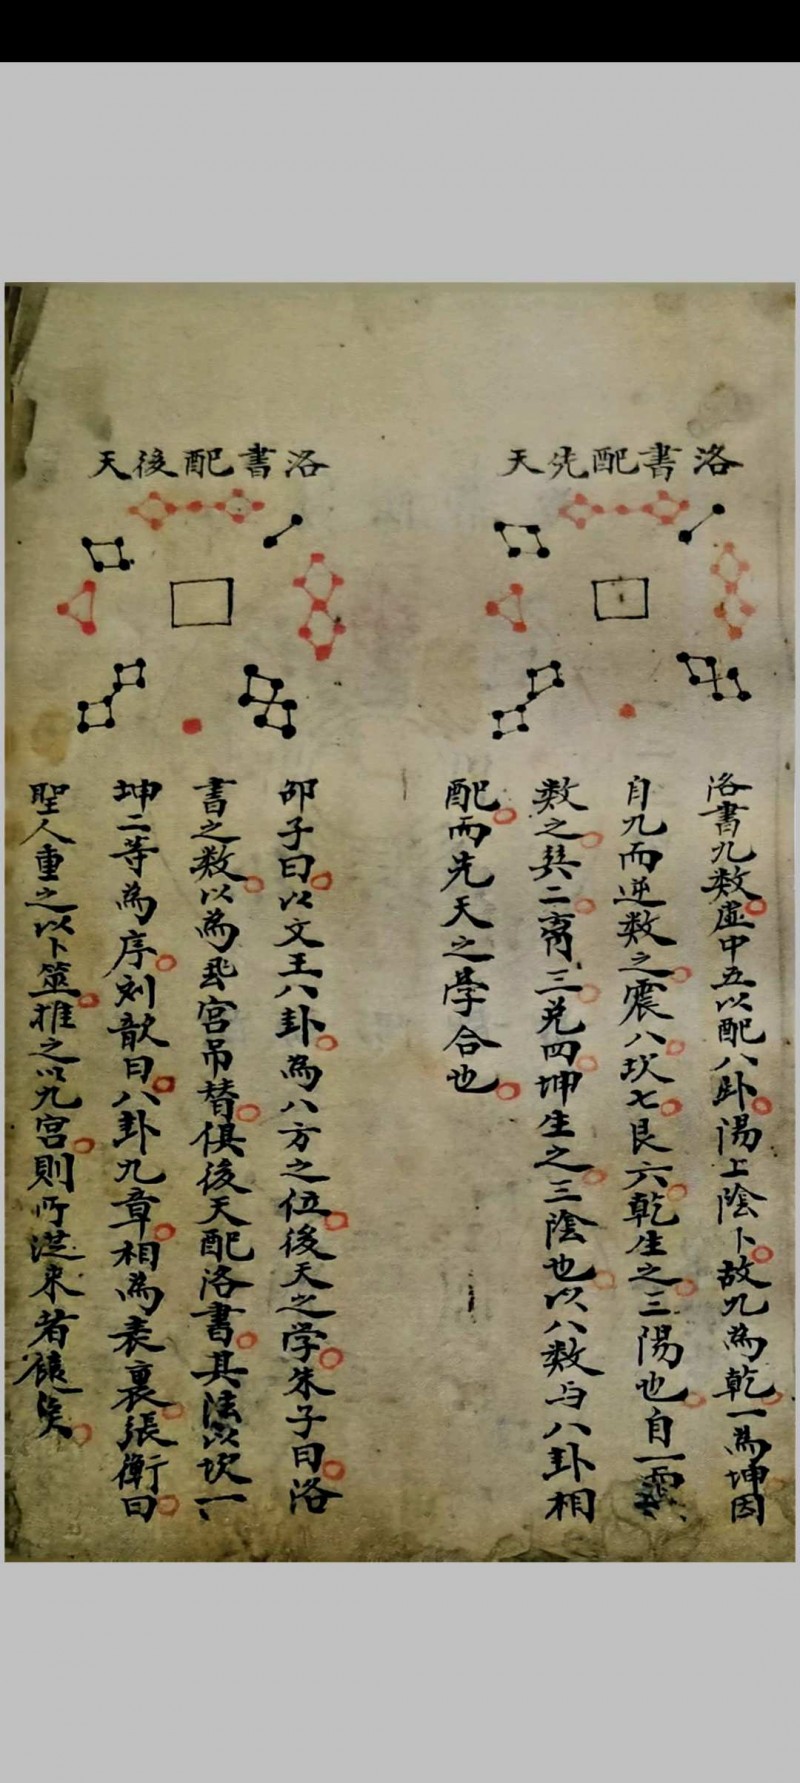 洛書配先天
洛書九数虛中五以配八卦陽上陰卜故九為乾一為坤因
自九而逆数之震八坎七艮六乾生之三陽也自一而
数之巽二离三兑四坤生之三陰也以八数与八卦相
配而先天之學合也
洛書配後天
邵子曰以文王八卦為八方之位後天之学朱子曰洛
書之数以為飛宮吊替俱後天配洛書其法以坎一
坤二等為序刘歆曰八卦九章相為表裏張衡曰
聖人重之以卜筮推之以九宮則所従来者遠矣